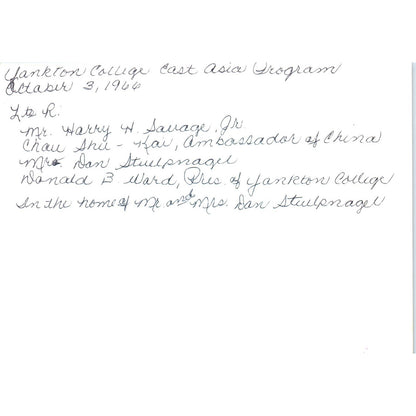 Yankton College East Asia Program
October 3, 1966
L to R:
Mr. Harry H. Savage, Jr.
Chau Shu-Kai, Ambassador of China
Mrs. Dan Stuelpnagel
Donald B Ward, Pres. of Yankton College
In the home of Mr. and Mrs. Dan Stuelpnagel